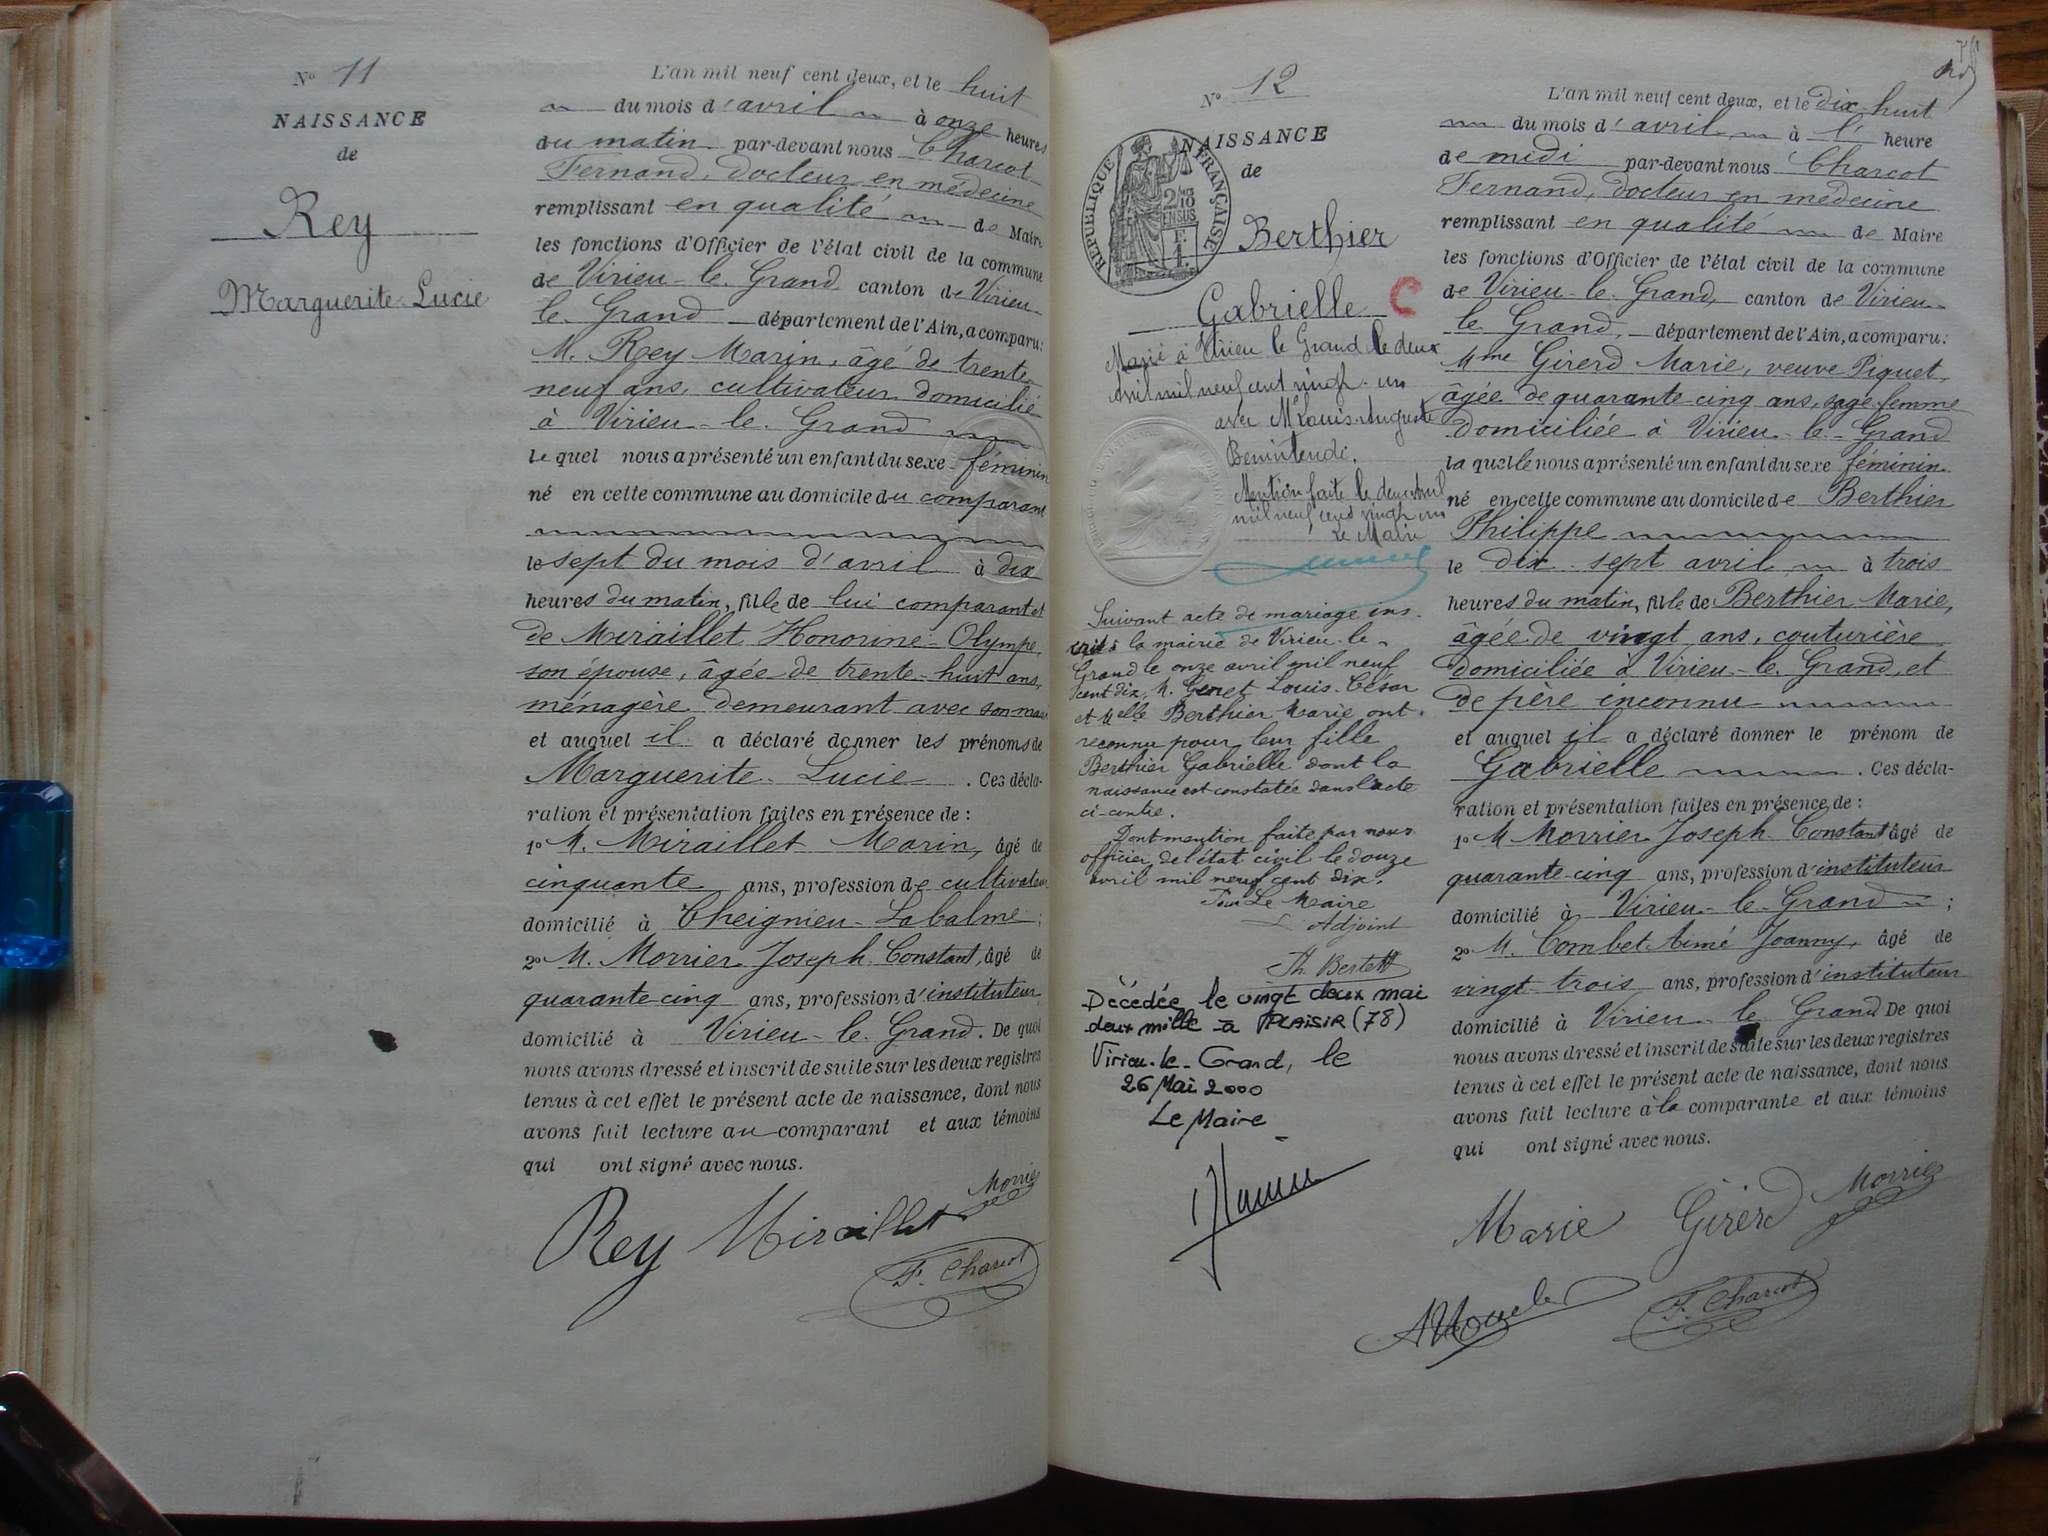 N° 11
NAISSANCE
de
Rey
Marguerite Lucie
L'an mil neuf cent deux, et le huit
du mois d'avril à onze heures
du matin par-devant nous Charcot
Fernand, docteur en médecine
remplissant en qualité de Maire
les fonctions d'Officier de l'état civil de la commune
de Virieu-le-Grand canton de Virieu-
le-Grand département de l'Ain, a comparu:
M. Rey Marin, âgé de trente-
neuf ans, cultivateur domicilié
à Virieu-le-Grand
lequel nous a présenté un enfant du sexe féminin
né en cette commune au domicile du comparant
le sept du mois d'avril à dix
heures du matin, fille de lui comparant et
de Miraillet Honorine-Olympe,
son épouse, âgée de trente-huit ans,
ménagère demeurant avec son mari
et auquel il a déclaré donner les prénoms de
Marguerite-Lucie. Ces décla-
ration et présentation faites en présence de:
1° M. Miraillet Marin, âgé de
cinquante ans, profession de cultivateur
domicilié à Cheignieu-Labalme;
2° M. Morrier Joseph-Constant, âgé de
quarante-cinq ans, profession d'instituteur
domicilié à Virieu-le-Grand. De quoi
nous avons dressé et inscrit de suite sur les deux registres
tenus à cet effet le présent acte de naissance, dont nous
avons fait lecture au comparant et aux témoins
qui ont signé avec nous.
Morrier
Rey Miraillet
F. Charcot
N° 12
NAISSANCE
de
RÉPUBLIQUE FRANÇAISE
2/10
EN SUS
F.
1.
Berthier
Gabrielle
C
Marié à Virieu le Grand le deux
avril mil neuf cent vingt-un
avec Mr Louis-Auguste
Benintendi.
Mention faite le deux avril
mil neuf cent vingt un
Le Maire
Suivant acte de mariage ins-
crit à la mairie de Virieu-le-
Grand le onze avril mil neuf
cent dix, M. Genet Louis-César
et Melle Berthier Marie ont
reconnu pour leur fille
Berthier Gabrielle dont la
naissance est constatée dans l'acte
ci-contre.
Dont mention faite par nous
officier de l'état civil le douze
avril mil neuf cent dix.
Pour Le Maire
L'Adjoint
Décédée le vingt deux mai
deux mille à PLAISIR (78)
Virieu-le-Grand, le
26 Mai 2000
Le Maire
L'an mil neuf cent deux, et le dix-huit
du mois d'avril à l' heure
de midi par-devant nous Charcot
Fernand, docteur en médecine
remplissant en qualité de Maire
les fonctions d'Officier de l'état civil de la commune
de Virieu-le-Grand, canton de Virieu-
le-Grand, département de l'Ain, a comparu:
Mme Girerd Marie, veuve Piquet,
âgée de quarante-cinq ans, sage-femme
domiciliée à Virieu-le-Grand
laquelle nous a présenté un enfant du sexe féminin
né en cette commune au domicile de Berthier
Philippe
le dix-sept avril à trois
heures du matin, fille de Berthier Marie,
âgée de vingt ans, couturière
domiciliée à Virieu-le-Grand, et
de père inconnu
et auquel il a déclaré donner le prénom de
Gabrielle. Ces décla-
ration et présentation faites en présence de:
1° M Morrier Joseph-Constant âgé de
quarante-cinq ans, profession d'instituteur
domicilié à Virieu-le-Grand;
2° M. Combet Aimé Joanny, âgé de
vingt-trois ans, profession d'instituteur
domicilié à Virieu-le-Grand De quoi
nous avons dressé et inscrit de suite sur les deux registres
tenus à cet effet le présent acte de naissance, dont nous
avons fait lecture à la comparante et aux témoins
qui ont signé avec nous.
Marie Girerd Morrier
F. Charcot